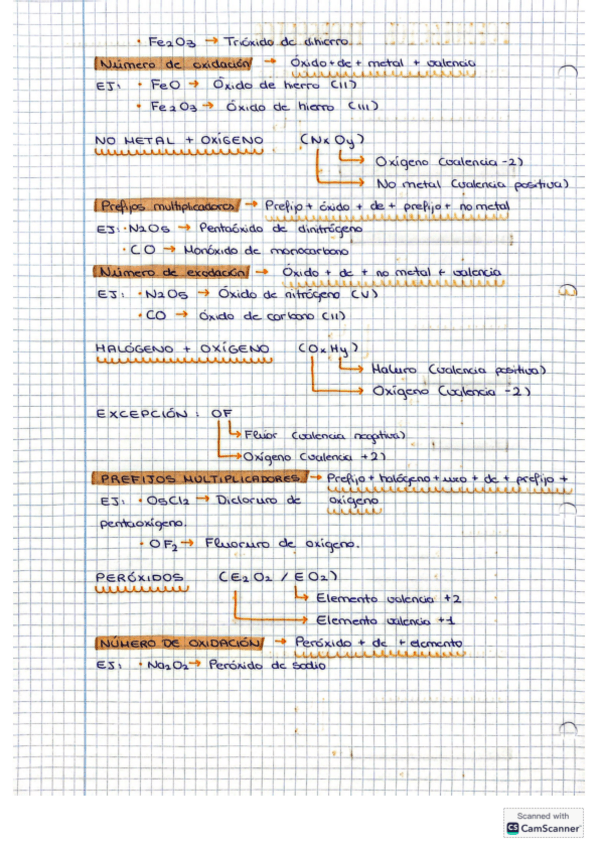 • Fe2O3 → Trióxido de dihierro.
Número de oxidación → Óxido + de + metal + valencia
EJ: • FeO → Óxido de hierro (II)
• Fe2O3 → Óxido de hierro (III)
NO METAL + OXÍGENO (NxOy)
→ Oxígeno (valencia -2)
→ No metal (valencia positiva)
Prefijos multiplicadores → Prefijo + óxido + de + prefijo + no metal
EJ: • N2O5 → Pentaóxido de dinitrógeno
• CO → Monóxido de monocarbono
Número de exodación → Óxido + de + no metal + valencia
EJ: • N2O5 → Óxido de nitrógeno (V)
• CO → Óxido de carbono (II)
HALÓGENO + OXÍGENO (OxHy)
→ Haluro (valencia positiva)
→ Oxígeno (valencia -2)
EXCEPCIÓN: OF
→ Flúor (valencia negativa)
→ Oxígeno (valencia +2)
PREFIJOS MULTIPLICADORES → Prefijo + halógeno + uro + de + prefijo +
EJ: • O5Cl2 → Dicloruro de oxígeno
pentaoxígeno.
• OF2 → Fluoruro de oxígeno.
PERÓXIDOS (E2O2 / EO2)
→ Elemento valencia +2
→ Elemento valencia +1
NÚMERO DE OXIDACIÓN → Peróxido + de + elemento
EJ: • Na2O2 → Peróxido de sodio
Scanned with
CS CamScanner